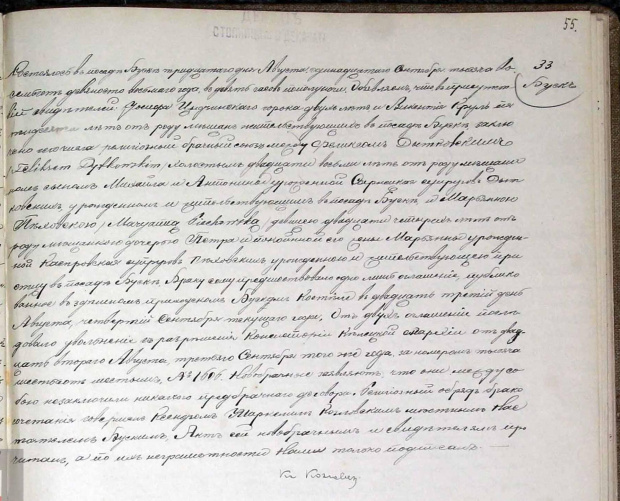 55.
33
Бускъ
Состоялось въ посадѣ Бускѣ тридцатаго дня Августа, одиннадцатаго Сентября тысяча во-
семьсотъ девяносто восьмаго года, въ девять часовъ пополудни. Объявляемъ, что въ присутст-
вій свидѣтелей Іосифа сорока двухъ лѣтъ и Викентія
лѣтъ отъ роду мѣщанъ жительствующихъ въ посадѣ Бускѣ, заклю-
чено сего числа религіозный брачный союзъ между Феликсомъ Дытковскимъ
холостымъ двадцати восьми лѣтъ отъ роду мѣщани-
номъ сыномъ Михаила и Антонины урожденной супруговъ Дыт-
ковскихъ, урожденнымъ и жительствующимъ въ посадѣ Бускѣ и Марьянною
дѣвицею двадцати четырехъ лѣтъ отъ
роду мѣщанкою дочерью Петра и покойной его жены Марьянны урожден-
ной Касперской супруговъ урожденною и жительствующею при
въ посадѣ Бускѣ. Браку сему предшествовало одно лишь оглашеніе, публико-
ванное въ здѣшнемъ приходскомъ Бускомъ Костелѣ въ двадцать третій день
Августа, четвертый Сентября текущаго года. Отъ двухъ оглашеній послѣ-
довало увольненіе съ разрѣшенія Консисторіи Кѣлецкой епархіи отъ двад-
цать втораго Августа, третьяго Сентября того же года, за номеромъ тысяча
шестьсотъ шестымъ, № 1606. Новобрачные заявляютъ, что они между со-
бою не заключили никакого предбрачнаго договора. Религіозный обрядъ брако-
сочетанія совершилъ Ксендзъ мѣстнымъ Нас-
тоятелемъ Бускимъ. Актъ сей новобрачнымъ и свидѣтелямъ про-
читанъ, а по ихъ неграмотности Нами только подписанъ.
Кс